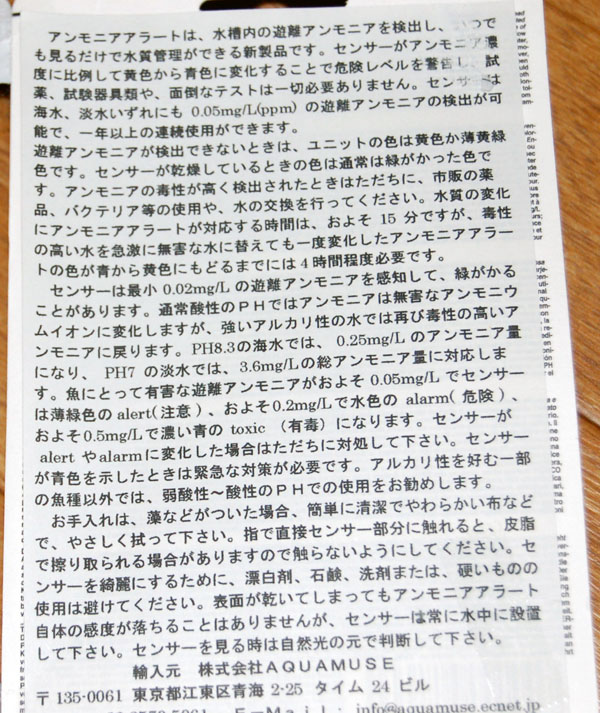 アンモニアアラートは、水槽内の遊離アンモニアを検出し、いつで
も見るだけで水質管理ができる新製品です。センサーがアンモニア濃
度に比例して黄色から青色に変化することで危険レベルを警告し、試
薬、試験器具類や、面倒なテストは一切必要ありません。センサーは
海水、淡水いずれにも 0.05mg/L(ppm) の遊離アンモニアの検出が可
能で、一年以上の連続使用ができます。
遊離アンモニアが検出できないときは、ユニットの色は黄色か薄黄緑
色です。センサーが乾燥しているときの色は通常は緑がかった色で
す。アンモニアの毒性が高く検出されたときはただちに、市販の薬
品、バクテリア等の使用や、水の交換を行ってください。水質の変化
にアンモニアアラートが対応する時間は、およそ 15 分ですが、毒性
の高い水を急激に無害な水に替えても一度変化したアンモニアアラー
トの色が青から黄色にもどるまでには 4 時間程度必要です。
センサーは最小 0.02mg/L の遊離アンモニアを感知して、緑がかる
ことがあります。通常酸性のＰＨではアンモニアは無害なアンモニウ
ムイオンに変化しますが、強いアルカリ性の水では再び毒性の高いア
ンモニアに戻ります。PH8.3の海水では、0.25mg/L のアンモニア量
になり、 PH7 の淡水では、3.6mg/Lの総アンモニア量に対応しま
す。魚にとって有害な遊離アンモニアがおよそ 0.05mg/L でセンサー
は薄緑色の alert(注意 )、およそ0.2mg/Lで水色の alarm( 危険 )、
およそ0.5mg/Lで濃い青の toxic （有毒）になります。センサーが
alert やalarmに変化した場合はただちに対処して下さい。センサー
が青色を示したときは緊急な対策が必要です。アルカリ性を好む一部
の魚種以外では、弱酸性～酸性のＰＨでの使用をお勧めします。
お手入れは、藻などがついた場合、簡単に清潔でやわらかい布など
で、やさしく拭って下さい。指で直接センサー部分に触れると、皮脂
で擦り取られる場合がありますので触らないようにしてください。セ
ンサーを綺麗にするために、漂白剤、石鹸、洗剤または、硬いものの
使用は避けてください。表面が乾いてしまってもアンモニアアラート
自体の感度が落ちることはありませんが、センサーは常に水中に設置
して下さい。センサーを見る時は自然光の元で判断して下さい。
輸入元 株式会社ＡＱＵＡＭＵＳＥ
〒135-0061 東京都江東区青海 2-25 タイム 24 ビル
Ｅ－Ｍａｉｌ： info@aquamuse.ecnet.jp